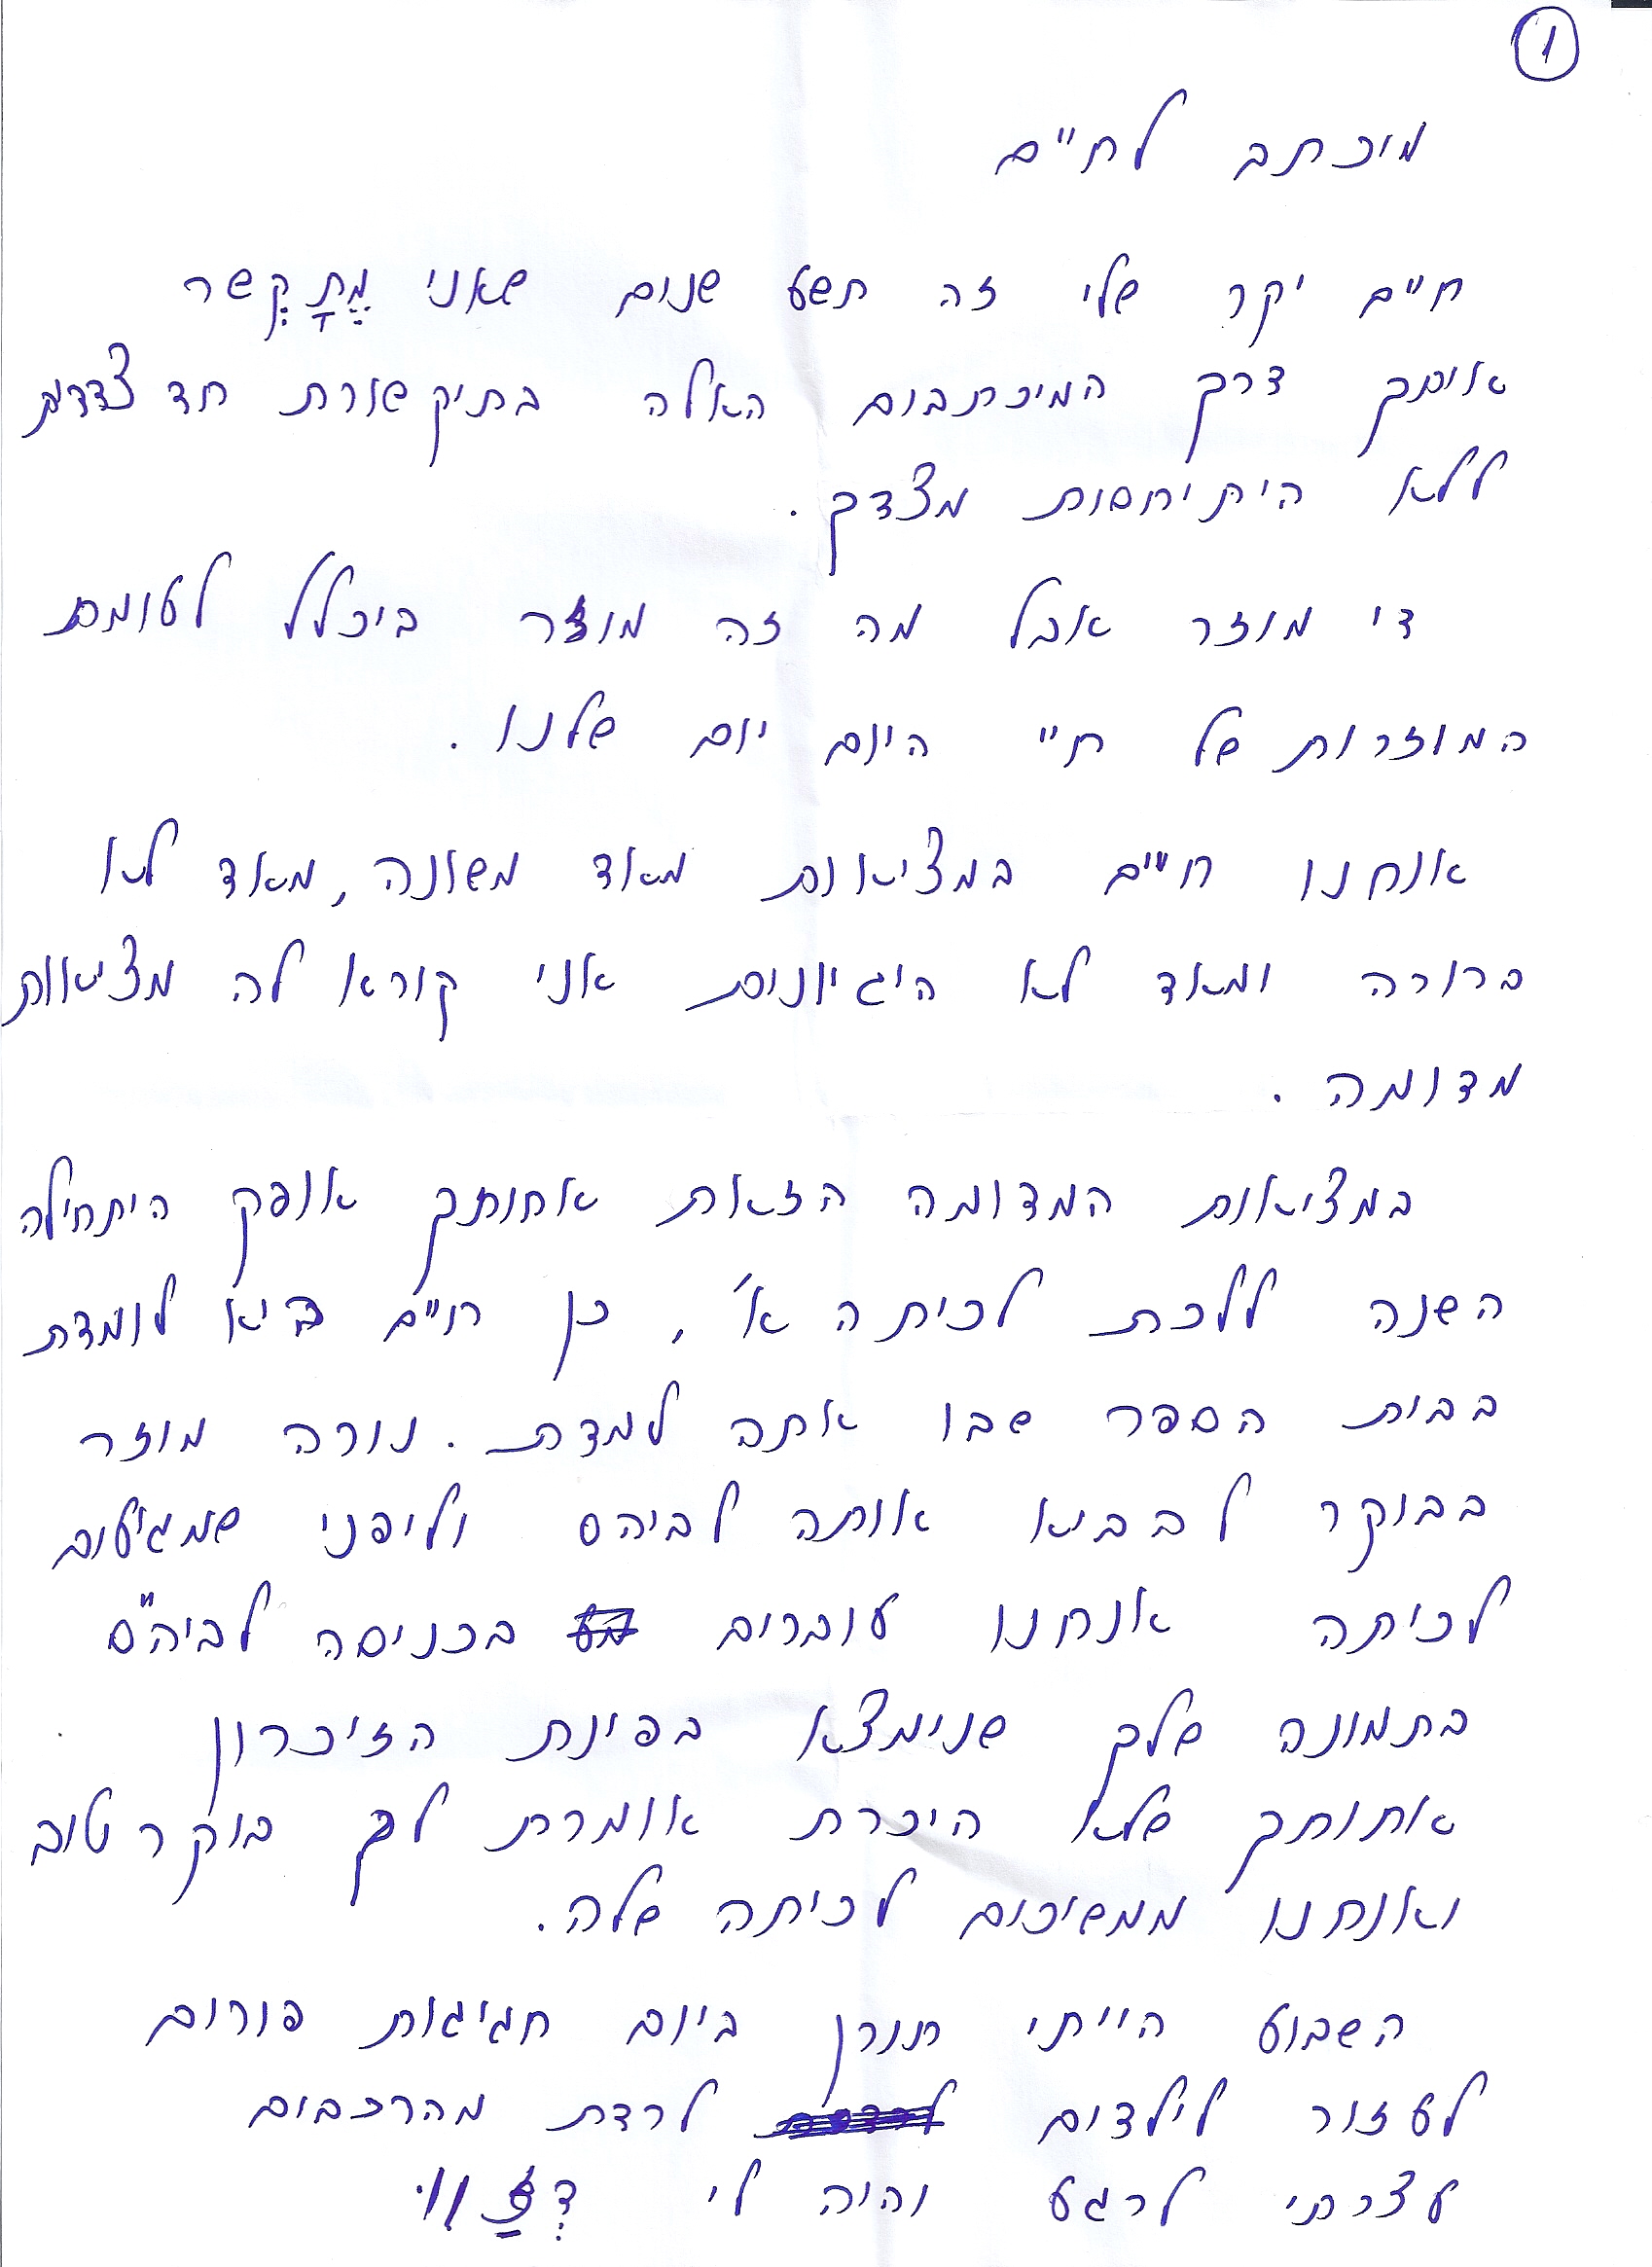 1
מיכתב לח"ים
חיים יקר שלי זה תשע שנים שאני מֱתָקֶשר
אותך דרך המיכתבים האלה בתיקשורת חד צדדית
ללא היתיחסות מצדך.
די מוזר אבל מה זה מוזר ביכלל לעומת
המוזרות של חיי היום יום שלנו.
אנחנו חיים במציאות מאוד משונה, מאוד לא
ברורה ומאוד לא היגיונית אני קורא לה מציאות
מדומה.
במציאות המדומה הזאת אחותך אופק היתחילה
השנה ללכת לכיתה א', כן חיים היא לומדת
בבית הספר שבו אתה למדת. נורה מוזר
בבוקר להביא אותה לביהס וליפני שמגיעים
לכיתה אנחנו עוברים בכניסה לביה"ס
בתמונה שלך שנימצא בפינת הזיכרון
אחותך שלא היכרת אומרת לך בוקר טוב
ואנחנו ממשיכים לכיתה שלה.
השבוע הייתי תורן ביום חגיגות פורים
לעזור לילדים לרדת מהרכבים
עצרתי לרגע והיה לי דְזַ'ווי